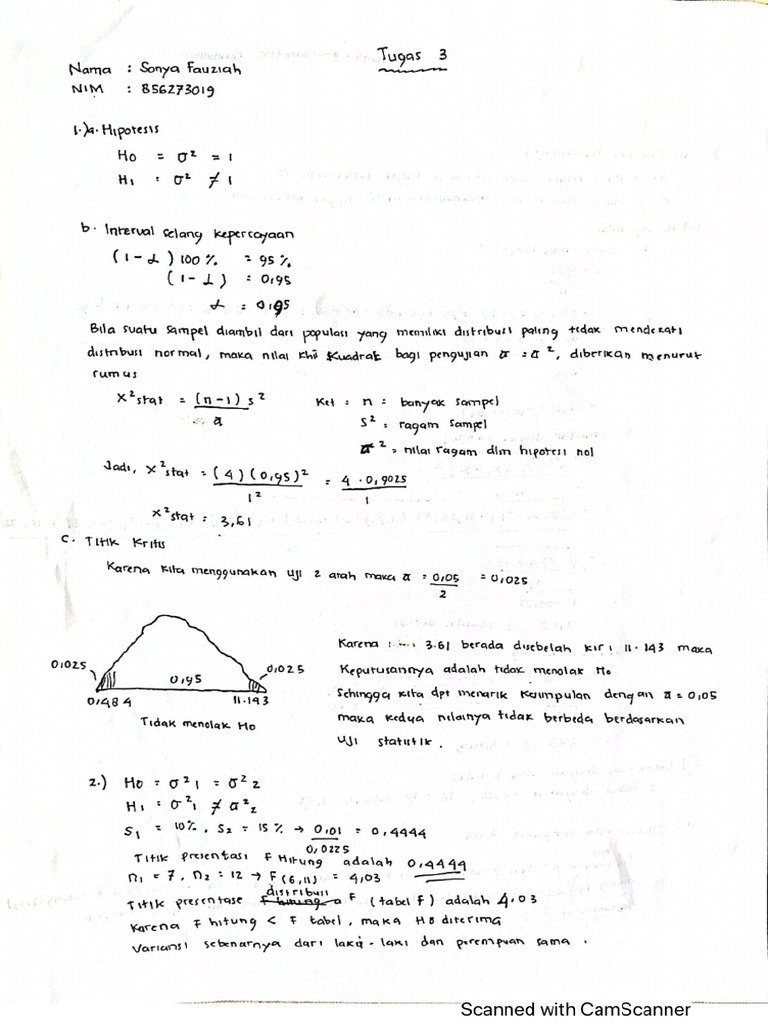 Tugas 3
Nama : Sonya Fauziah
NIM : 856273019
1.)a. Hipotesis
Ho = σ² = 1
H₁ : σ² ≠ 1
b. Interval selang kepercayaan
(1 - α) 100 % = 95 %
(1 - α) = 0,95
α = 0,95
Bila suatu sampel diambil dari populasi yang memiliki distribusi paling tidak mendekati
distribusi normal, maka nilai khi kuadrat bagi pengujian σ = σ², diberikan menurut
rumus
X² stat = (n-1) s² / σ Ket : n : banyak sampel
s² : ragam sampel
σ² = nilai ragam dlm hipotesis nol
Jadi, X² stat = (4) (0,95)² / 1² = 4 . 0,9025 / 1
X² stat = 3,61
C. Titik Kritis
Karena kita menggunakan uji 2 arah maka α = 0,05 / 2 = 0,025
0,025 0,95 0,025
0,484 11.143
Tidak menolak Ho
Karena 3.61 berada disebelah kiri 11.143 maka
Keputusannya adalah tidak menolak Ho
Sehingga kita dpt menarik kesimpulan dengan α = 0,05
maka kedua nilainya tidak berbeda berdasarkan
uji statistik.
2.) Ho = σ²1 = σ²2
H₁ = σ²1 ≠ σ²2
S₁ = 10%, S₂ = 15% → 0,01 / 0,0225 = 0,4444
Titik presentasi F Hitung adalah 0,4444
n₁ = 7, n₂ = 12 → F(6,11) = 4,03
Titik presentase distribusi F (tabel F) adalah 4.03
Karena F hitung < F tabel, maka Ho diterima
Variansi sebenarnya dari laki-laki dan perempuan sama.
Scanned with CamScanner